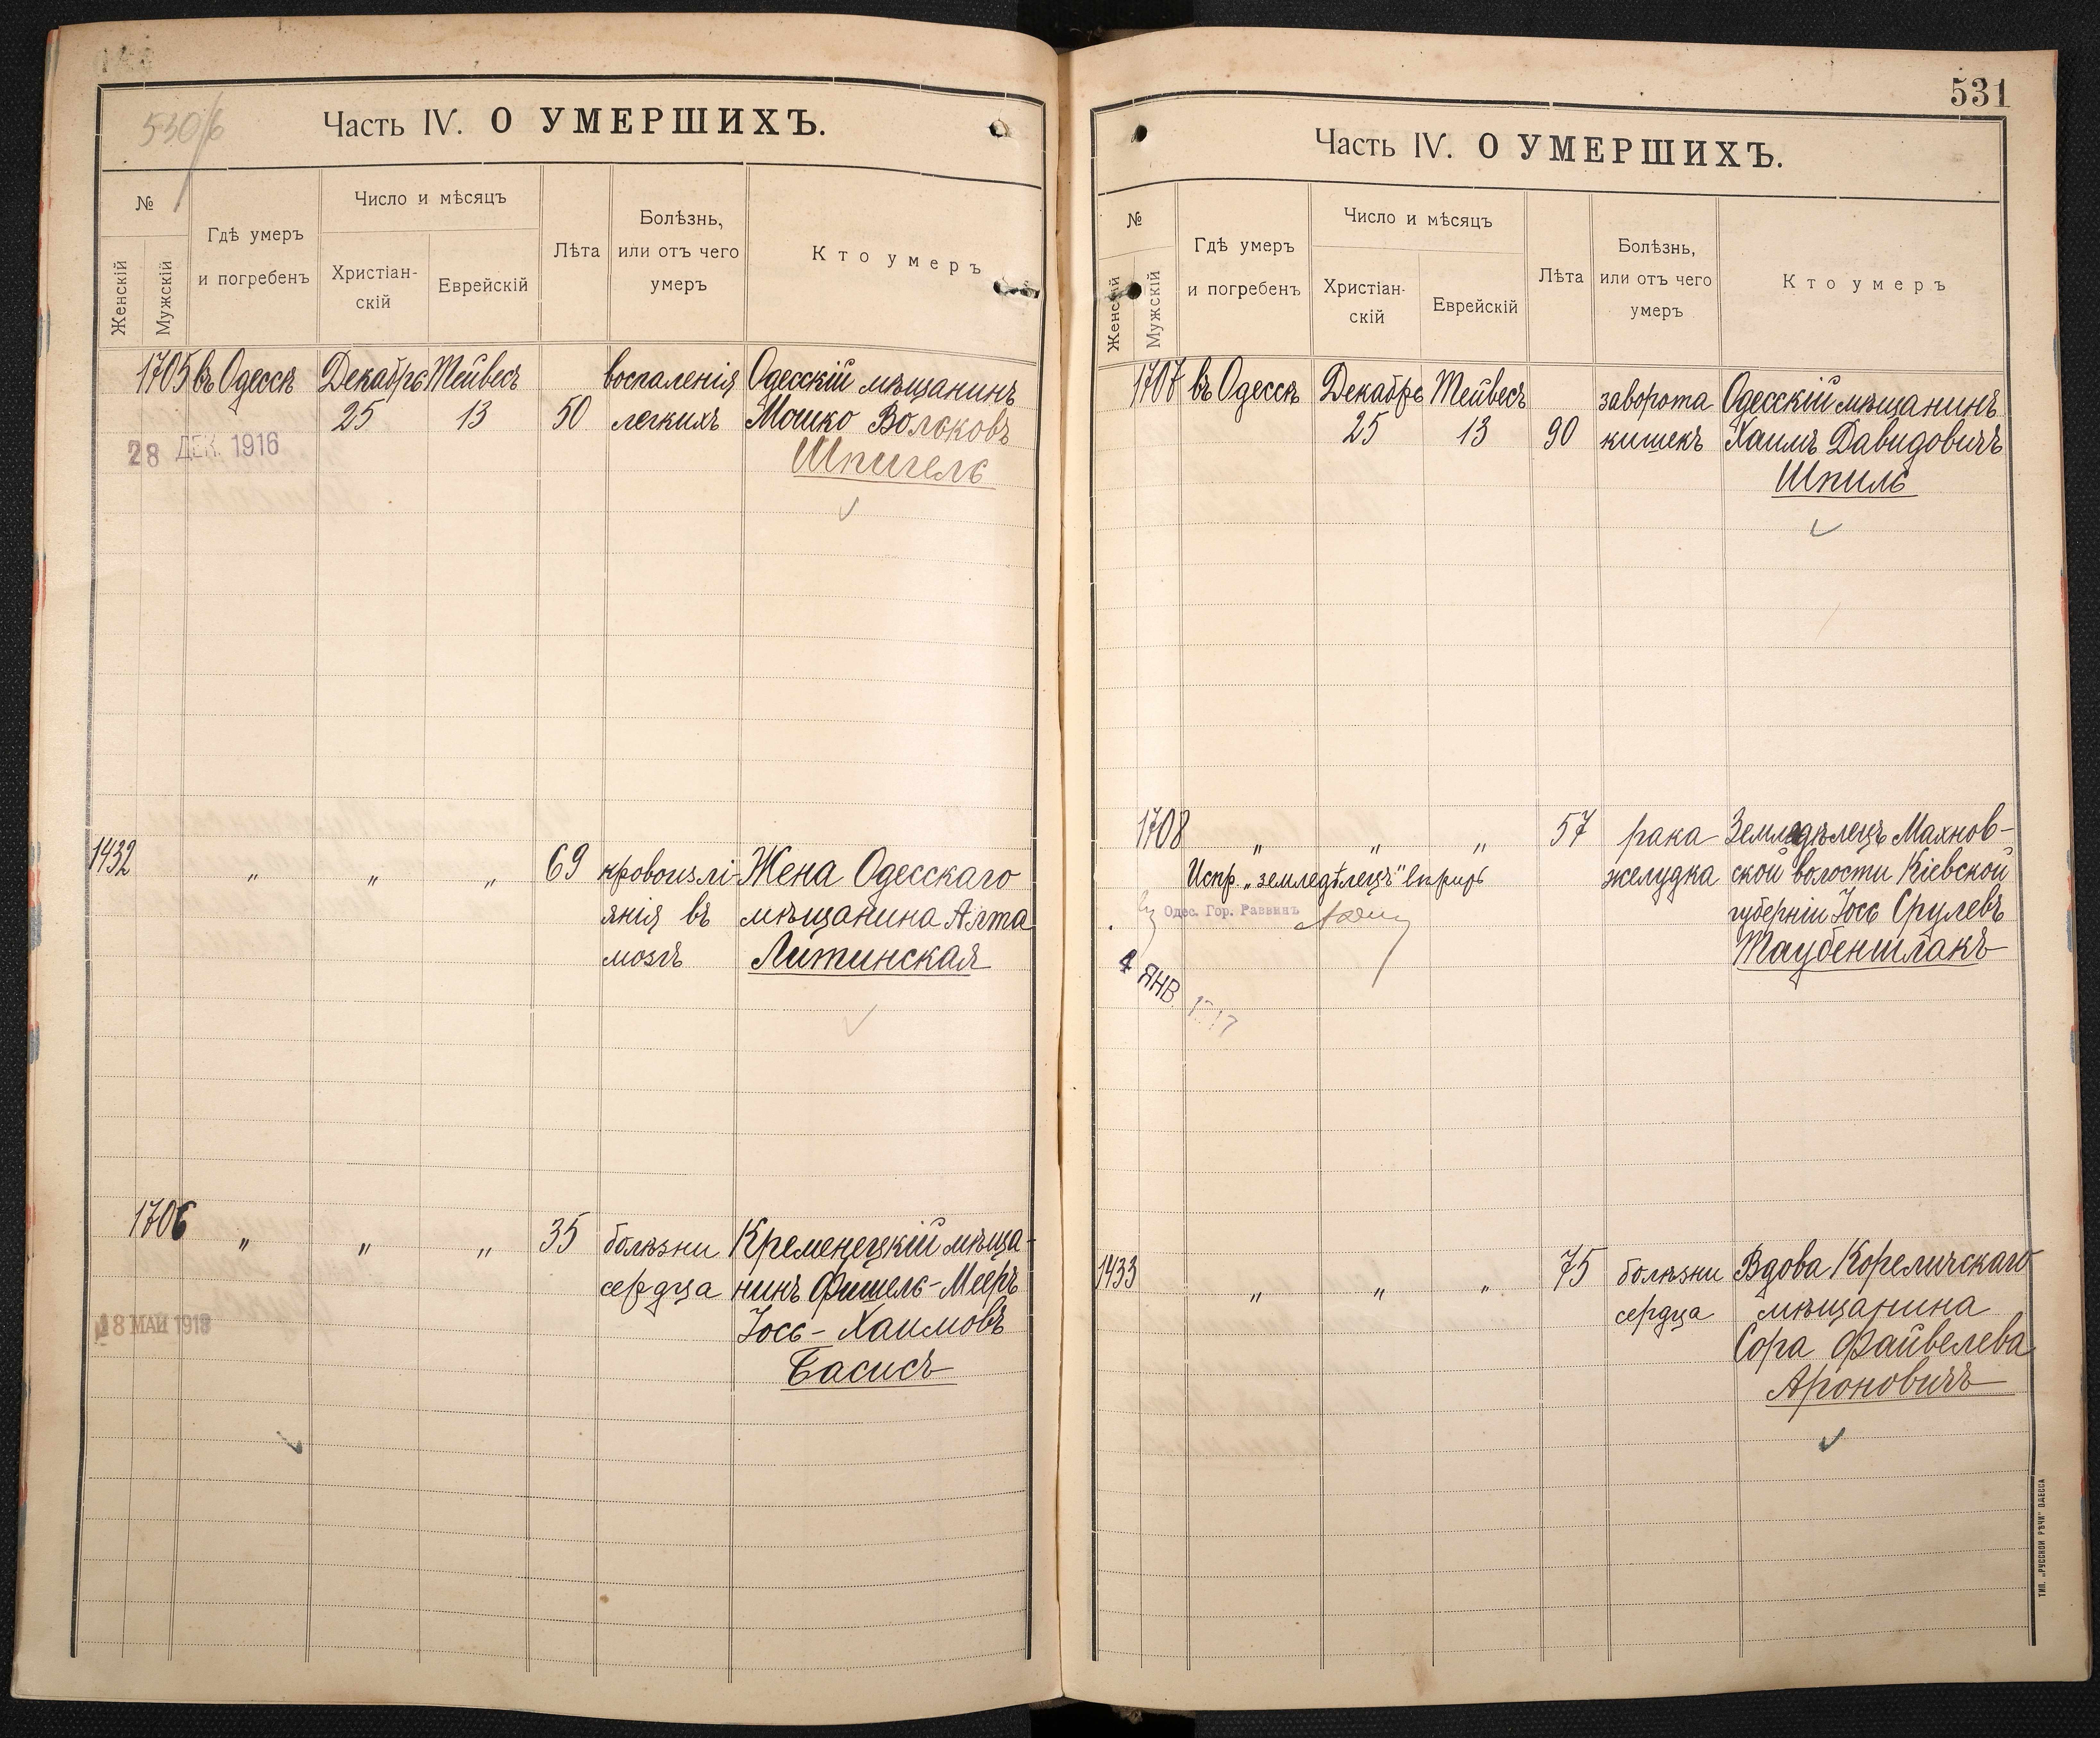 530/б
Часть IV. О УМЕРШИХЪ.
№
Женскій
Мужскій
Гдѣ умеръ
и погребенъ
Число и мѣсяцъ
Христіан-
скій
Еврейскій
Лѣта
Болѣзнь,
или отъ чего
умеръ
Кто умеръ
1705 въ Одессѣ Декабрь Тейвесъ воспаленія Одесскій мѣщанинъ
25 13 50 легкихъ Мошко Вольковъ
Шпигель
28 ДЕК. 1916
1432 " " " 69 кровоизлі- Жена Одесскаго
янія въ мѣщанина
мозгъ Литинская
1706 " " " 35 болѣзни Кременецкій мѣща-
сердца нинъ Фишель-Мееръ
Іось-Хаимовъ
Басисъ
18 МАЙ
531
Часть IV. О УМЕРШИХЪ.
№
Женскій
Мужскій
Гдѣ умеръ
и погребенъ
Число и мѣсяцъ
Христіан-
скій
Еврейскій
Лѣта
Болѣзнь,
или отъ чего
умеръ
Кто умеръ
1707 въ Одессѣ Декабрь Тейвесъ заворота Одесскій мѣщанинъ
25 13 90 кишекъ Хаимъ Давидовичъ
Шпиль
1708 " " " 57 рака Земледѣлецъ Махнов-
желудка ской волости Кіевской
губерніи Іось Срулевъ
Таубеншлакъ
Испр. „земледѣлецъ"
Одес. Гор. Раввинъ
4 ЯНВ. 1917
1433 " " " 75 болѣзни Вдова Кореличскаго
сердца мѣщанина
Сора Файвелева
Ароновичъ
ТИП. „РУССКОЙ РѢЧИ" ОДЕССА